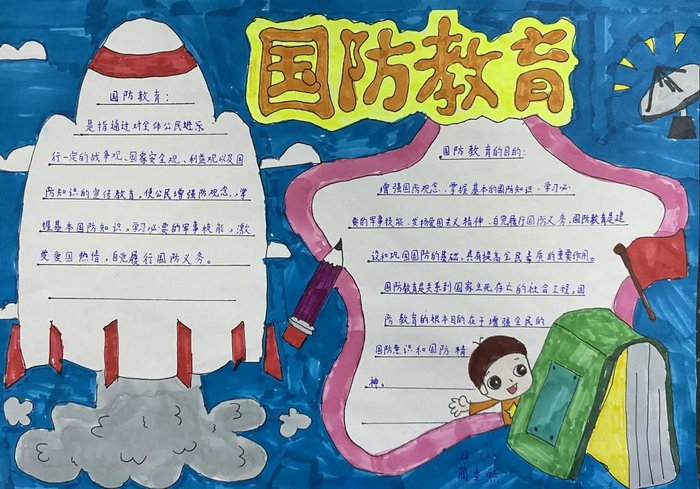 国防教育
国防教育：
是指通过对全体公民进乐
行一定的战争观、国家安全观、利益观以及国
防知识的宣传教育，使公民增强防观念、掌
握基本国防知识，学习必要的军事技能，激
发爱国热情，自觉履行国防义务。
国防教育的目的：
增强国防观念、掌握基本的国防知识、学习必
要的军事技能、发扬爱国主义精神、自觉履行国防义务。国防教育是建
设和巩固国防的基础，具有提高全民素质的重要作用。
国防教育是关系到国家生死存亡的社会工程，国
防教育的根本目的在于增强全民的
国防意识和国防精
神。